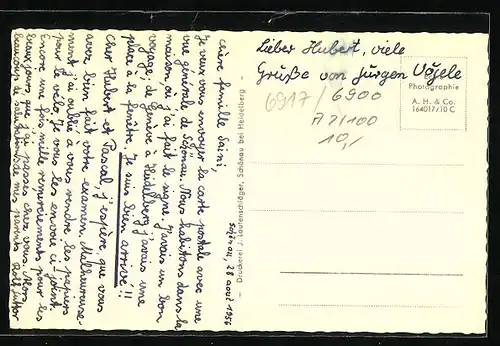 Lieber Hubert, viele
Grüße von Jürgen Vögele
Photographie
A. H. & Co.
164017/10 C
6917/ 6900
A 7/100
10,-
Schönau bei Heidelberg
Schönau, 28 août 1956
Chère famille Saini,
Je veux vous envoyer la carte postale avec une
vue générale de Schönau. Nous habitons dans la
maison où j'ai fait le signe. J'avais un bon
voyage; de Genève à Heidelberg j'avais une
place à la fenêtre. Je suis bien arrivé!!
Cher Hubert et Pascal, j'espère que vous
avez bien fait votre examen. Malheureuse-
ment j'ai oublié à vous rendre les papiers
pour le vélo. Je vous les envoie ci-joint.
Encore une fois mille remerciements pour les
beaux jours que j'ai passés chez vous. Alors
beaucoup de salutations de mes parents